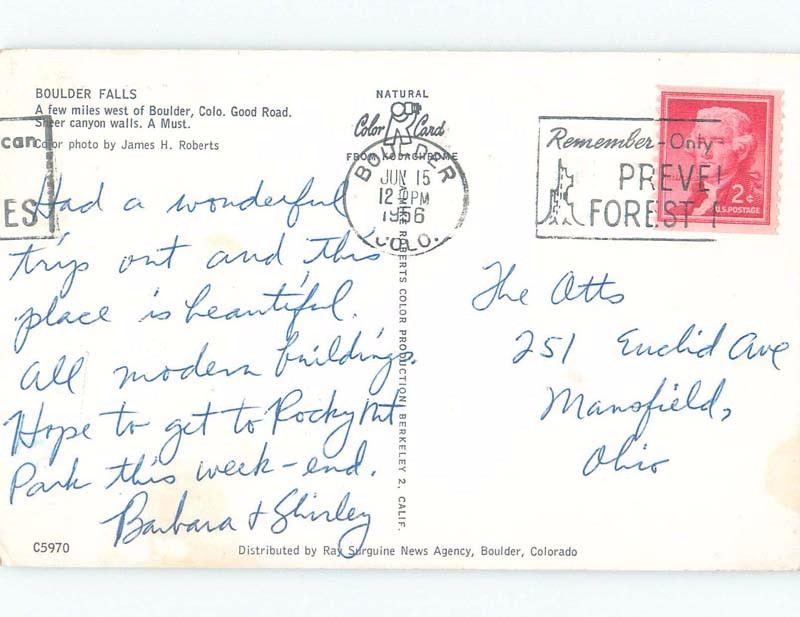 BOULDER FALLS
A few miles west of Boulder, Colo. Good Road.
Sheer canyon walls. A Must.
Color photo by James H. Roberts
can
ES
NATURAL
Color Card
FROM KODACHROME
BOULDER
JUN 15
12 PM
1956
COLO.
Remember-Only
PREVE
FOREST
2¢
U.S. POSTAGE
Had a wonderful
trip out and this
place is beautiful.
All modern buildings.
Hope to get to Rocky Mt
Park this week-end.
Barbara & Shirley
ROBERTS COLOR PRODUCTION, BERKELEY 2, CALIF.
The Otts
251 Euclid Ave
Mansfield,
Ohio
C5970
Distributed by Ray Surguine News Agency, Boulder, Colorado